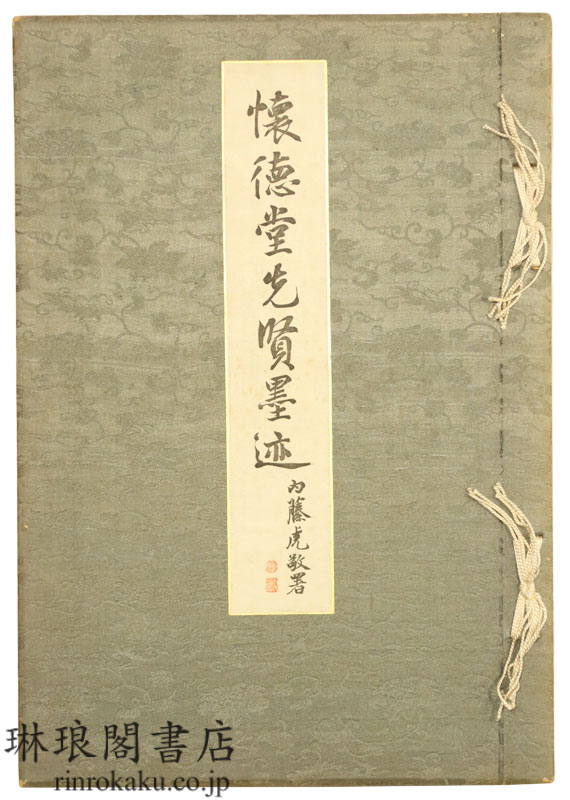 懐徳堂先賢墨迹
内藤虎敬署
琳琅閣書店
rinrokaku.co.jp